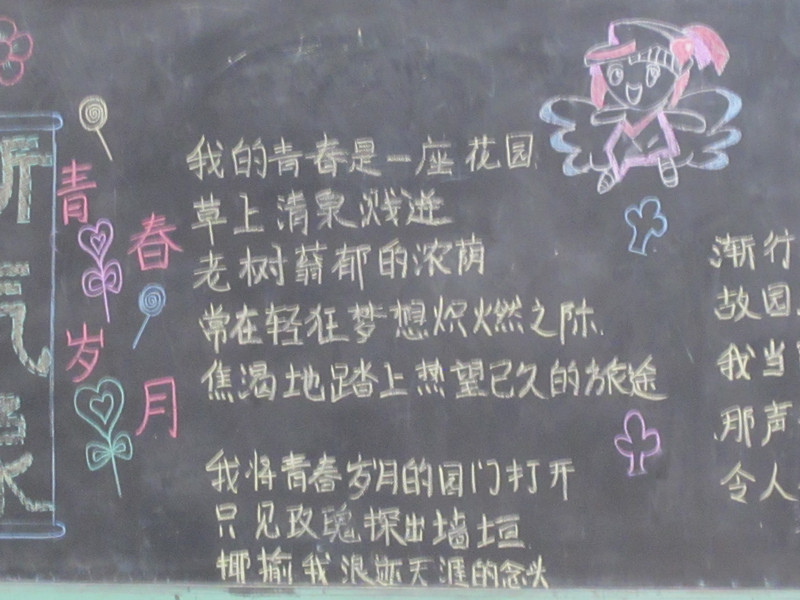 青春岁月
我的青春是一座花园
草上清泉溅迸
老树蓊郁的浓荫
常在轻狂梦想炽燃之际
焦渴地踏上热望已久的旅途
我将青春岁月的园门打开
只见玫瑰探出墙垣
揶揄我浪迹天涯的念头
渐行
故园
我当
那声
令人